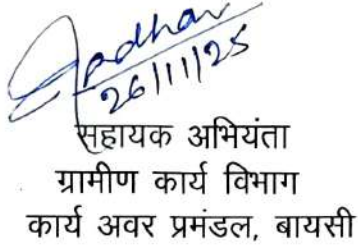 26/11/25
सहायक अभियंता
ग्रामीण कार्य विभाग
कार्य अवर प्रमंडल, बायसी